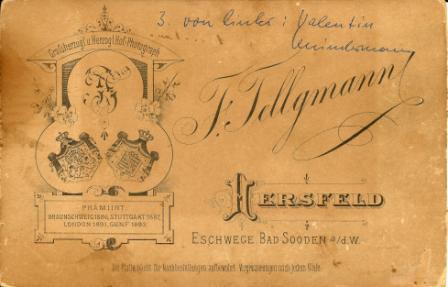 3. von links: Valentin
Grossherzogl. u. Herzogl. Hof-Photograph
F. Tellgmann
PRÄMIIRT
BRAUNSCHWEIG 1890, STUTTGART 1887,
LONDON 1891, GENF 1893.
HERSFELD
ESCHWEGE BAD SOODEN a/d. W.
Die Platte bleibt für Nachbestellungen aufbewahrt. Vergrösserungen nach jedem Bilde.